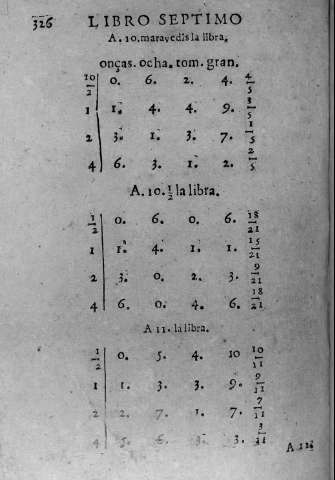 326 LIBRO SEPTIMO
A. 10. maravedis la libra.
onças. ocha. tom. gran.
10/2 0. 6. 2. 4. 4/5
1 1. 4. 4. 9. 3/5
2 3. 1. 3. 7. 1/5
4 6. 3. 1. 2. 2/5
A. 10. 1/2 la libra.
1/2 0. 6. 0. 6. 18/21
1 1. 4. 1. 1. 15/21
2 3. 0. 2. 3. 9/21
4 6. 0. 4. 6. 18/21
A 11. la libra.
1/2 0. 5. 4. 10 10/11
1 1. 3. 3. 9. 9/11
2 2. 7. 1. 7. 7/11
4 5. 6. 3. 3. 3/11